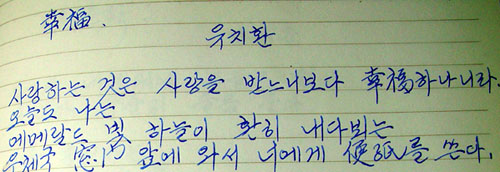 幸福.
유치환
사랑하는 것은 사랑을 받느니보다 幸福하나니라.
오늘도 나는
에메랄드 빛 하늘이 환히 내다뵈는
우체국 窓門 앞에 와서 너에게 便紙를 쓴다.